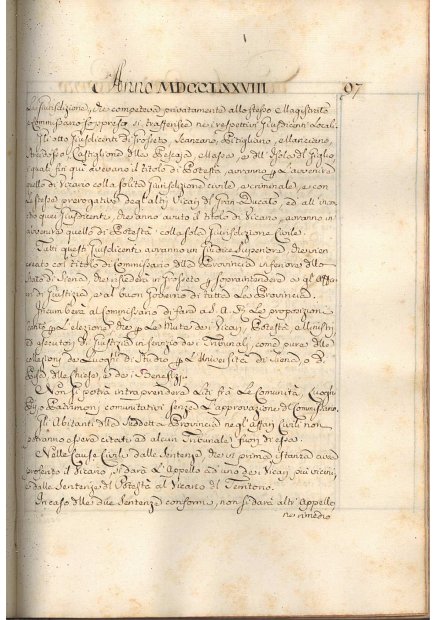 Anno MDCCLXXVIII
97
La Giurisdizione, che competeva privatamente allo stesso Magistrato
e Commissario soppressi si trasferisce nei respettivi Giusdicenti Locali.
Gli otto Giusdicenti di Grosseto, Scanzano, Pitigliano, Manciano,
Arcidosso, Castiglione della Pescaja, Massa, e dell' Isola del Giglio,
i quali fin qui avevano il titolo di Potestà, avranno p l'avvenire
quello di Vicario colla solita Giurisdizione civile, e criminale, e con
le stesse prerogative degl'altri Vicari del Gran-Ducato, ed all'in-
contro quei Giusdicenti, che anno avuto il titolo di Vicario, avranno in
avvenire quello di Potestà colla sola Giurisdizione Civile.
Tutti questi Giusdicenti avranno un Giudice Superiore, che vien
creato col titolo di Commissario della Provincia inferiore dello
Stato di Siena, che risiederà in Grosseto p sopraintendere a gl'Affa-
ri di Giustizia, e al buon Governo di tutta la Provincia.
Incumberà al Commissario di fare a S. A. R. le proposizioni
tanto p l'elezioni, che p le Mute dei Vicari, Potestà, Ministri,
ed esecutori di Giustizia in servizio dei Tribunali, come pure delle
collazioni dei Luoghi di Studio p l'Università di Siena, o di
Pisa, delle Chiese, e dei Benefizj.
Non si potrà intraprendere Liti frà le Comunità, Luoghi
Pij, o Patrimonj comunitativi senza l'approvazione del Commissario.
Gli Abitanti della suddetta Provincia negl'affari Civili non
potranno essere citati ad alcun Tribunale fuori di essa.
Nelle Cause Civili dalle Sentenze, che in prima istanza avrà
proferito il Vicario, si darà l'Appello ad uno dei Vicari più vicini,
e dalle Sentenze del Potestà al Vicario del Territorio.
In caso delle due Sentenze conformi, non si darà altr' Appello,
ne rimedio